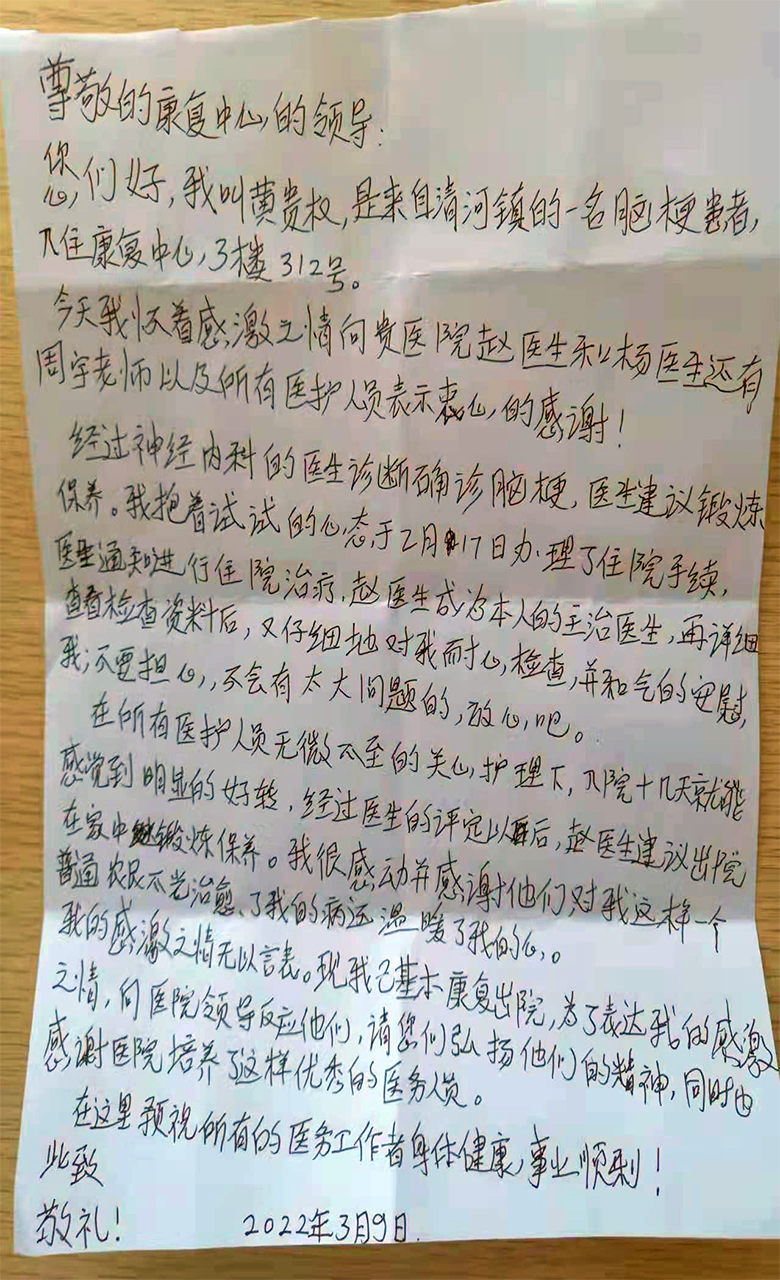 尊敬的康复中心的领导:
您们好,我叫黄贵权,是来自清河镇的一名脑梗患者,
入住康复中心,3楼312号。
今天我怀着感激之情向贵医院赵医生和杨医生还有
周宇老师以及所有医护人员表示衷心的感谢!
经过神经内科的医生诊断确诊脑梗,医生建议锻炼
保养。我抱着试试的心态,于2月17日办理了住院手续,
医生通知进行住院治疗,赵医生成为本人的主治医生,再详细
查看检查资料后,又仔细地对我耐心检查,并和气的安慰
我;不要担心,不会有太大问题的,放心吧。
在所有医护人员无微不至的关心护理下,入院十几天就能
感觉到明显的好转,经过医生的评定以后,赵医生建议出院
在家中锻炼保养。我很感动并感谢他们对我这样一个
普通农民不光治愈了我的病还温暖了我的心。
我的感激之情无以言表。现我已基本康复出院,为了表达我的感激
之情,向医院领导反应他们,请您们弘扬他们的精神,同时也
感谢医院培养了这样优秀的医务人员。
在这里预祝所有的医务工作者身体健康,事业顺利!
此致
敬礼!
2022年3月9日.